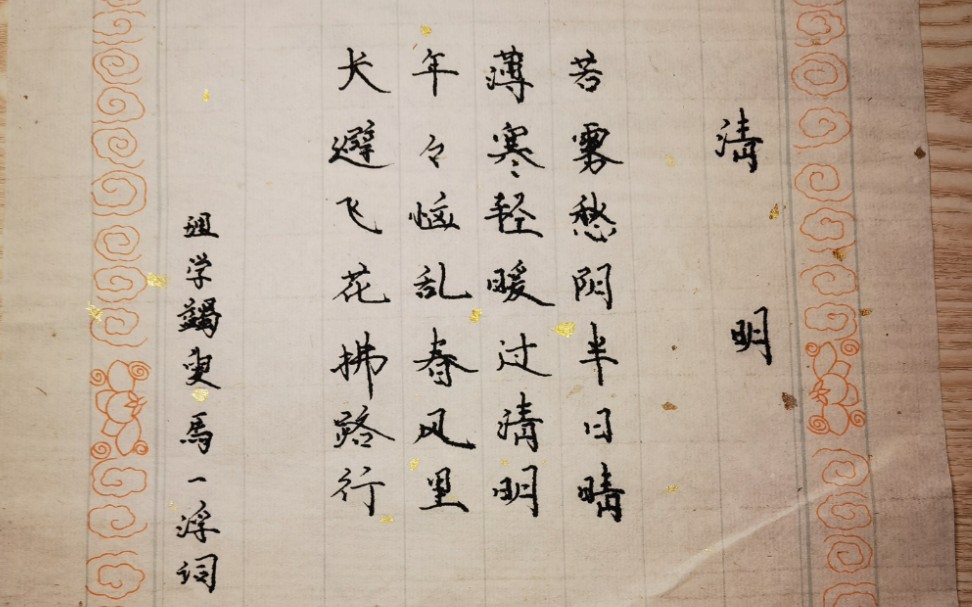 清明
苦雾愁阴半日晴
薄寒轻暖过清明
年々恼乱春风里
犬避飞花拂路行
学蠲叟馬一浮词